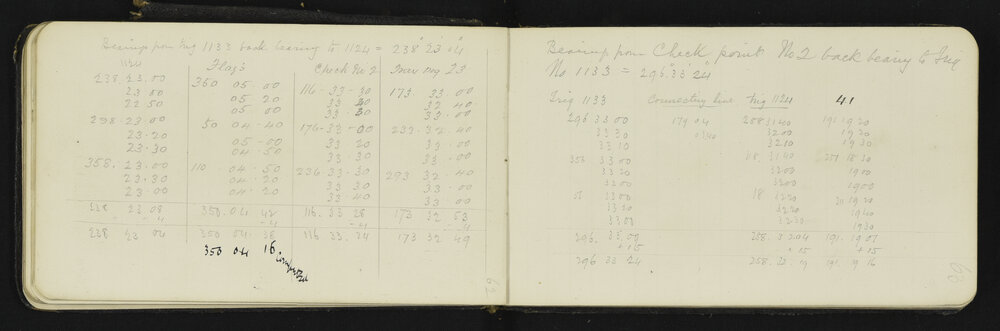 Bearings from Trig 1133 back bearing to 1124 = 238° 23' 04"
1124 Flag 3 Check No 2 Trav Peg 23
238.23.00 350 05.00 116.33.30 173 33 00
23 00 05.20 33 20 32 40
22 50 05 00 33 30 33.00
298.23 00 50 04.40 176.33.00 233.32.40
23.20 05-00 33 20 33.00
23.30 04-50 33.30 33.00
358.23.00 110 04.50 236.33.30 293 32 40
23.30 04.20 33 30 33 00
23.00 04.20 33 40 33 00
238 23 08 350.04 42 116.33 28 173 32 53
-4 -4 -4 -4
238 23 04 350 04.38 116 33.24 173 32 49
350 04 16
Bearings from Check point No 2 back bearing to Trig
No 1133 = 296° 33' 24"
Trig 1133 Connecting line Trig 1124 41
296 33 00 179 04 258 31 40 191 19 20
33 30 03 40 32 00 19 20
33 10 32 10 19 30
356 33 00 18 31 40 251 18 30
33 20 32 00 19 00
32 00 32 00 19 00
33 00 18 32 20 19 20
33 20 32 20 19 40
33 00 32 20 19 30
296. 33.09 258. 32 04 191. 19 01
+15 +15 +15
296 33 24 258. 32. 19 191. 19 16
62
63